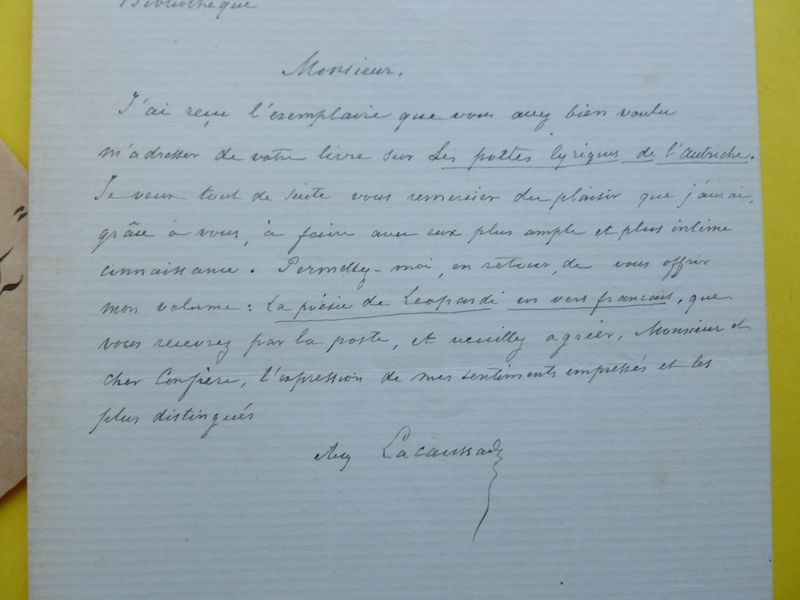 Bibliothèque
Monsieur.
J'ai reçu l'exemplaire que vous avez bien voulu
m'adresser de votre livre sur Les poëtes lyriques de l'Autriche.
Je veux tout de suite vous remercier du plaisir que j'aurai,
grâce à vous, à faire avec eux plus ample et plus intime
connaissance. Permettez-moi, en retour, de vous offrir
mon volume : La poésie de Leopardi en vers français, que
vous recevrez par la poste, et veuillez agréer, Monsieur et
cher Confrère, l'expression de mes sentiments empressés et les
plus distingués
Aug Lacaussade